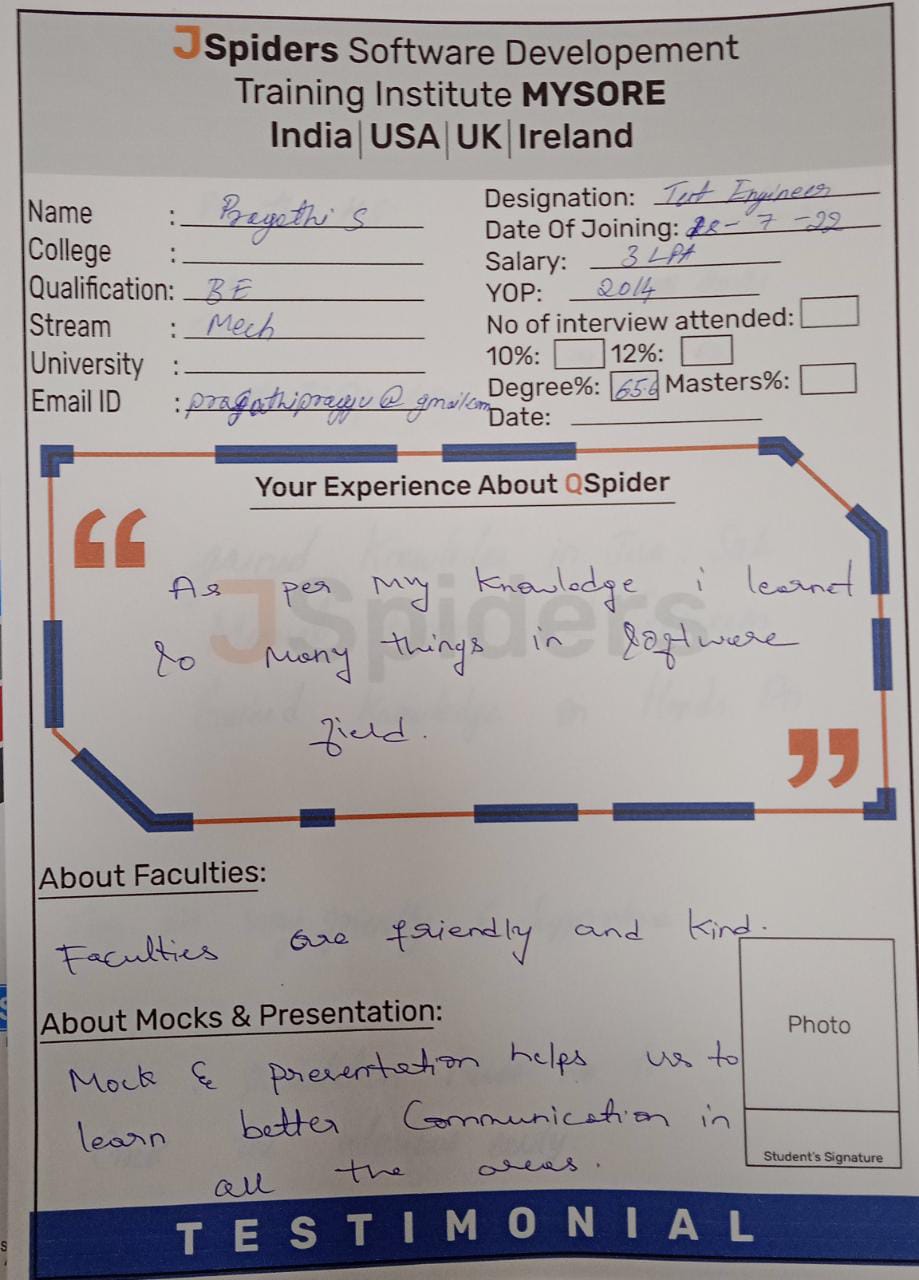 JSpiders Software Developement
Training Institute MYSORE
India|USA|UK|Ireland
Name : Pragathi S
College :
Qualification: BE
Stream : Mech
University :
Email ID : pragathiprajju@gmail.com
Designation: Test Engineer
Date Of Joining: 28-7-22
Salary: 3 LPA
YOP: 2014
No of interview attended:
10%: 12%:
Degree%: 65.6 Masters%:
Date:
Your Experience About QSpider
“
JSpiders
As per my knowledge i learnet
so many things in software
field.
”
About Faculties:
Faculties are friendly and kind.
About Mocks & Presentation:
Mock & presentation helps us to
learn better Communication in
all the areas.
Photo
Student's Signature
TESTIMONIAL